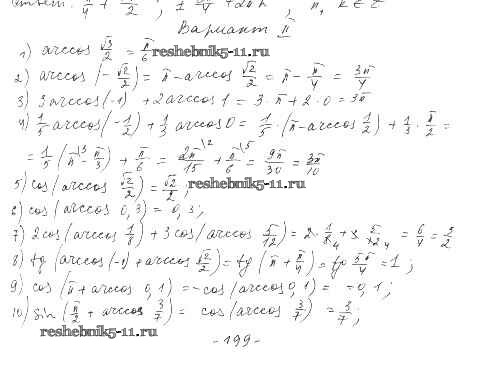 Ответ: π/4 + π/2 ; ± π/4 + 2πk, n, k ∈ Z
Вариант II
1) arccos √3/2 = π/6 reshebnik5-11.ru
2) arccos (-√2/2) = π - arccos √2/2 = π - π/4 = 3π/4
3) 3 arccos(-1) + 2 arccos 1 = 3·π + 2·0 = 3π
4) 1/5 arccos(-1/2) + 1/3 arccos 0 = 1/5 · (π - arccos 1/2) + 1/3 · π/2 =
= 1/5 (π\3 - π/3) + π/6 = 2π/15\2 + π/6\5 = 9π/30 = 3π/10
5) cos (arccos √2/2) = √2/2; reshebnik5-11.ru
6) cos (arccos 0,3) = 0,3;
7) 2cos(arccos 1/8) + 3cos(arccos 5/12) = 2·1/8 4 + 3·5/12 4 = 6/4 = 3/2
8) tg (arccos(-1) + arccos √2/2) = tg (π + π/4) = tg 5π/4 = 1;
9) cos (π + arccos 0,1) = -cos (arccos 0,1) = -0,1;
10) sin (π/2 + arccos 3/7) = cos (arccos 3/7) = 3/7;
reshebnik5-11.ru
- 199 -